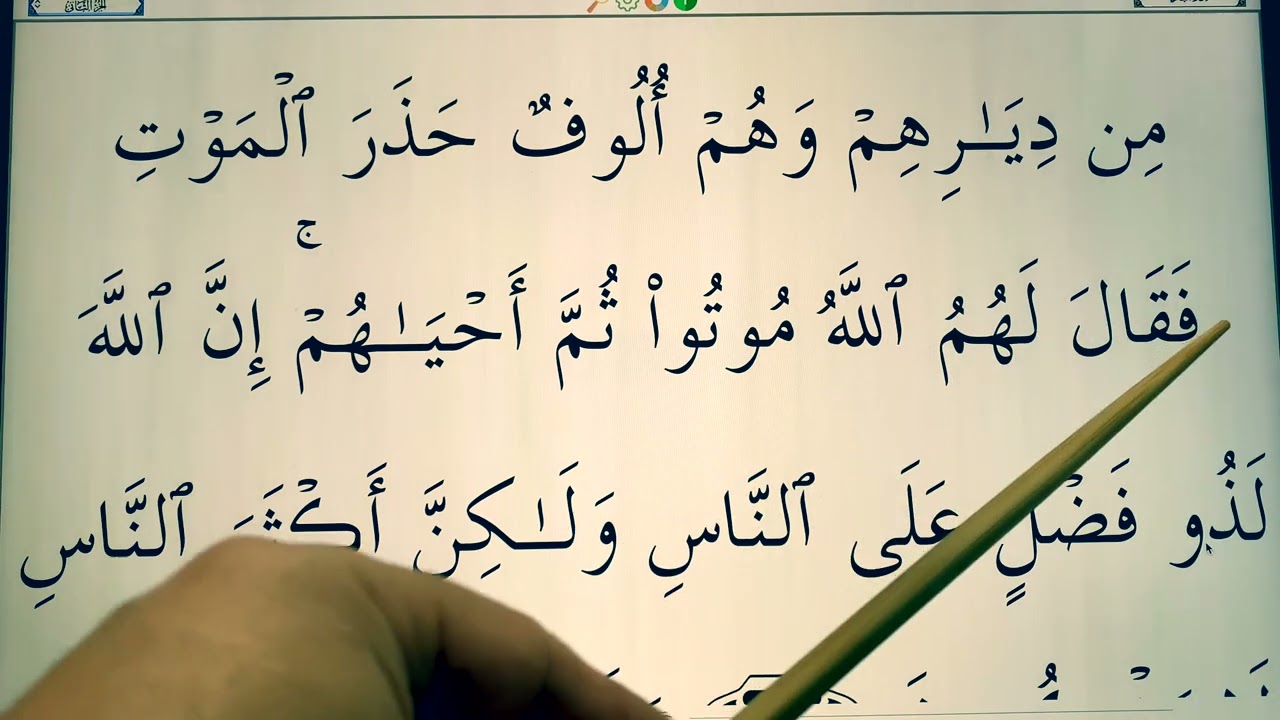 الجزء الثاني
مِن دِيَـٰرِهِمْ وَهُمْ أُلُوفٌ حَذَرَ ٱلْمَوْتِ
فَقَالَ لَهُمُ ٱللَّهُ مُوتُوا۟ ثُمَّ أَحْيَـٰهُمْ ۚ إِنَّ ٱللَّهَ
لَذُو فَضْلٍ عَلَى ٱلنَّاسِ وَلَـٰكِنَّ أَكْثَرَ ٱلنَّاسِ